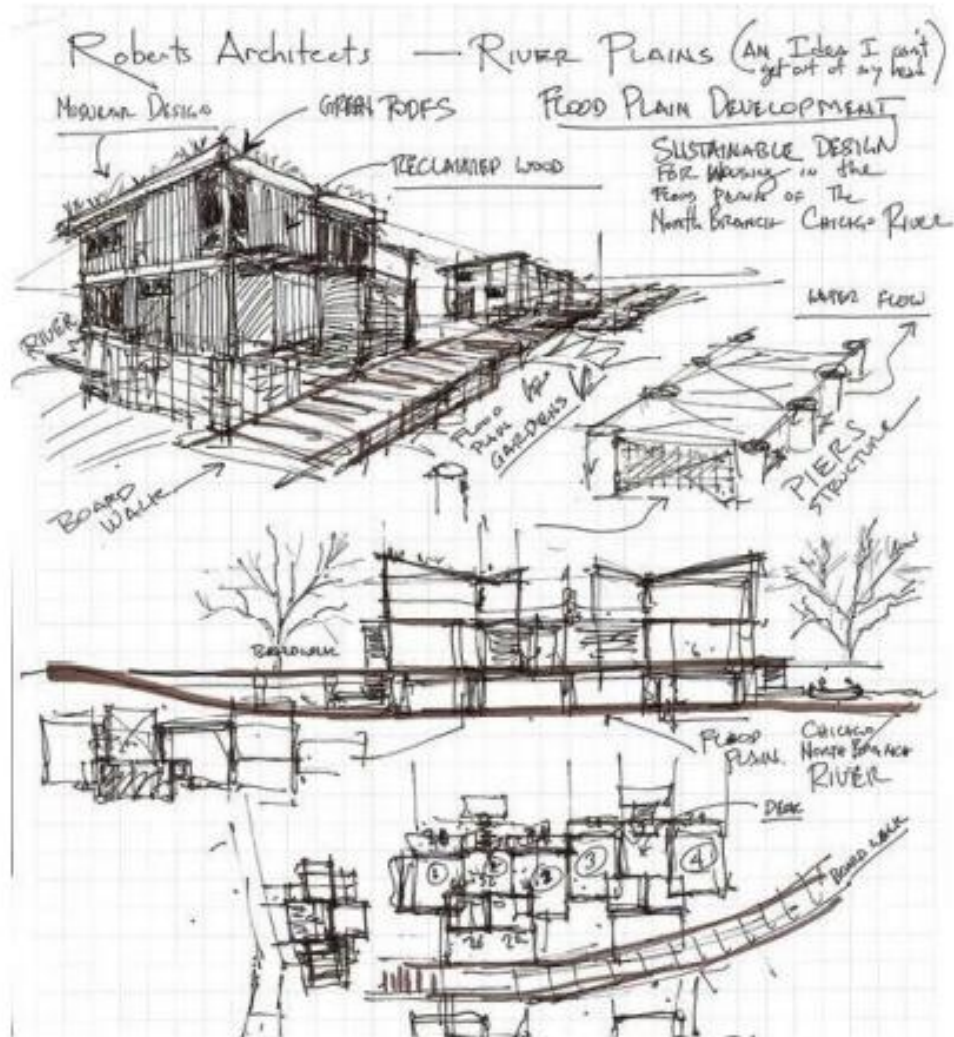 Roberts Architects — RIVER PLAINS (AN Idea I can't
get out of my head)
MODULAR DESIGN
GREEN ROOFS
FLOOD PLAIN DEVELOPMENT
RECLAIMED WOOD
SUSTAINABLE DESIGN
FOR HOUSING in the
FLOOD PLAINS OF THE
NORTH BRANCH CHICAGO RIVER
WATER FLOW
RIVER
FLOOD
PLAIN
GARDENS
PIERS
STRUCTURE
BOARD
WALK
BOARDWALK
FLOOD
PLAIN
CHICAGO
NORTH BRANCH
RIVER
DECK
1
3
4
BOARDWALK